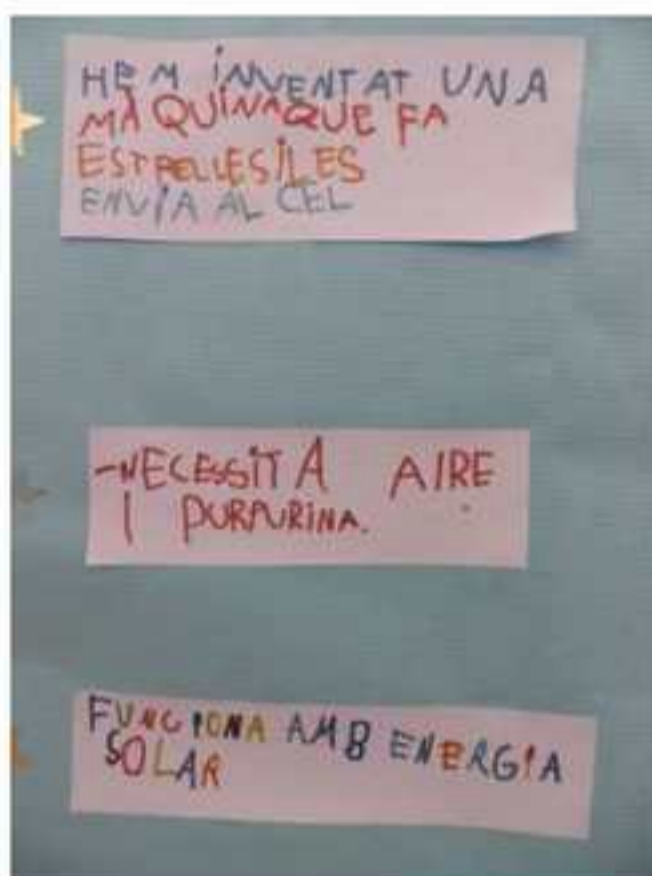 HEM INVENTAT UNA
MÀQUINAQUE FA
ESTRELLESILES
ENVIA AL CEL
-NECESSITA AIRE
I PURPURINA.
FUNCIONA AMB ENERGIA
SOLAR